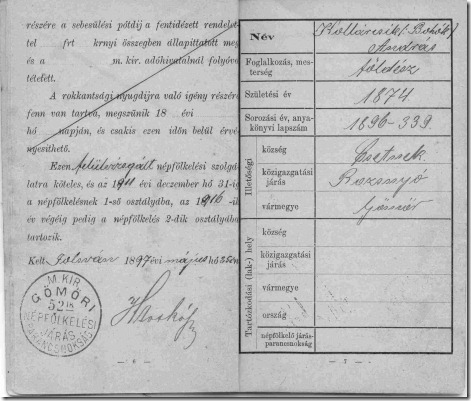 részére a sebesülési pótdij a fentidézett rendelet
tel frt krnyi összegben állapittatott meg
és a m. kir. adóhivatalnál folyóvá
tétetett.
A rokkantsági nyugdijra való igény részére
fenn van tartva, megszünik 18 évi
hó napján, és csakis ezen időn belül érvé-
nyesithető.
Ezen felülvizsgált népfölkelési szolgá-
latra köteles, és az 1911 évi deczember hó 31-ig
a népfölkelésnek 1-ső osztályába, az 1916-ik
év végéig pedig a népfölkelés 2-dik osztályába
tartozik.
Kelt Jolsván 1897 évi május hó
M. KIR.
GÖMÖRI
52ik
NÉPFÖLKELÉSI
JÁRÁS
PARANCSNOKSÁG
— 6 —
Név
Koltárcsik (: Bohók :)
András
Foglalkozás, mes-
terség
földész
Születési év
1874
Sorozási év, anya-
könyvi lapszám
1896-339.
Illetőségi
község
Csetnek
közigazgatási
járás
Rozsnyó
vármegye
Gömör
Tartózkodási (lak-) hely
község
közigazgatási
járás
vármegye
ország
népfölkelő járás-
parancsnokság
— 7 —